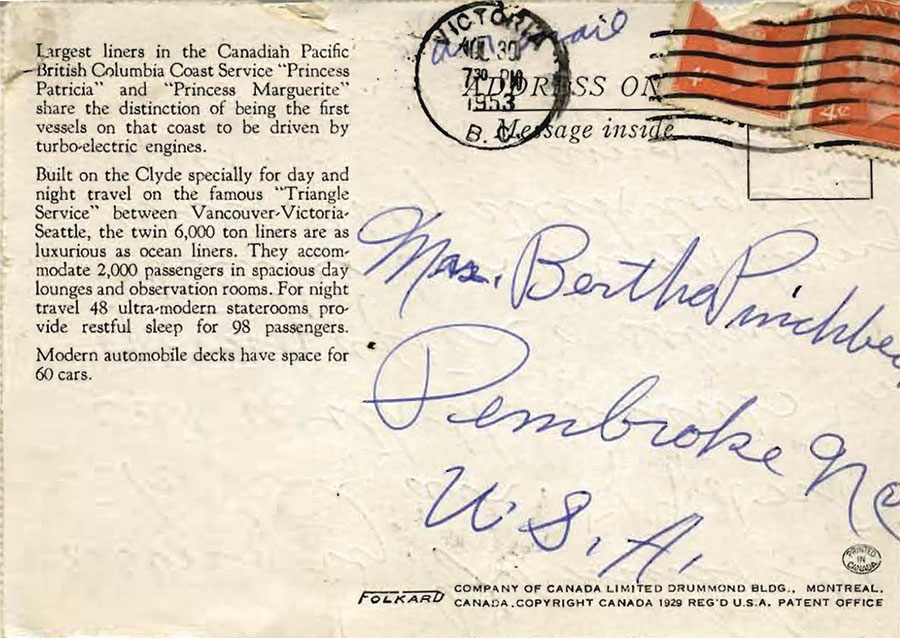 Largest liners in the Canadian Pacific
British Columbia Coast Service "Princess
Patricia" and "Princess Marguerite"
share the distinction of being the first
vessels on that coast to be driven by
turbo-electric engines.
Built on the Clyde specially for day and
night travel on the famous "Triangle
Service" between Vancouver-Victoria-
Seattle, the twin 6,000 ton liners are as
luxurious as ocean liners. They accom-
modate 2,000 passengers in spacious day
lounges and observation rooms. For night
travel 48 ultra-modern staterooms pro-
vide restful sleep for 98 passengers.
Modern automobile decks have space for
60 cars.
VICTORIA
30
730 PM
1953
B.C.
air mail
ADDRESS ON
Message inside
4c
4c
Mrs. Bertha Pinchbe
Pembroke
U.S.A.
PRINTED
IN
CANADA
FOLKARD COMPANY OF CANADA LIMITED DRUMMOND BLDG., MONTREAL,
CANADA. COPYRIGHT CANADA 1929 REG'D U.S.A. PATENT OFFICE